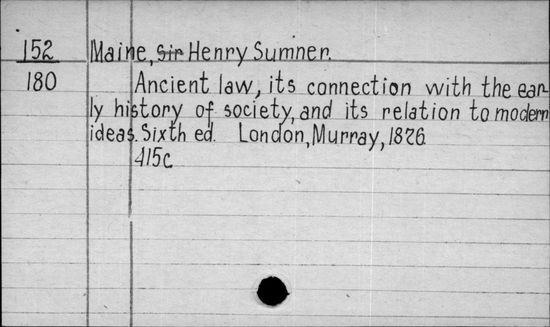 152 Maine, Sir Henry Sumner.
180 Ancient law, its connection with the ear-
ly history of society, and its relation to modern
ideas. Sixth ed. London, Murray, 1876
415c